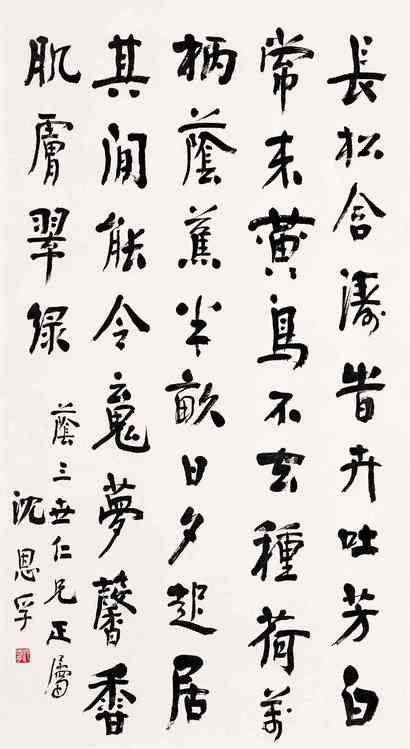 長松含濤旹卉吐芳白
常来黄鳥不去種荷萬
柄蔭蕉半畝日夕起居
其間能令魂夢馨香
肌膚翠綠
蔭三世仁兄正屬
沈恩孚